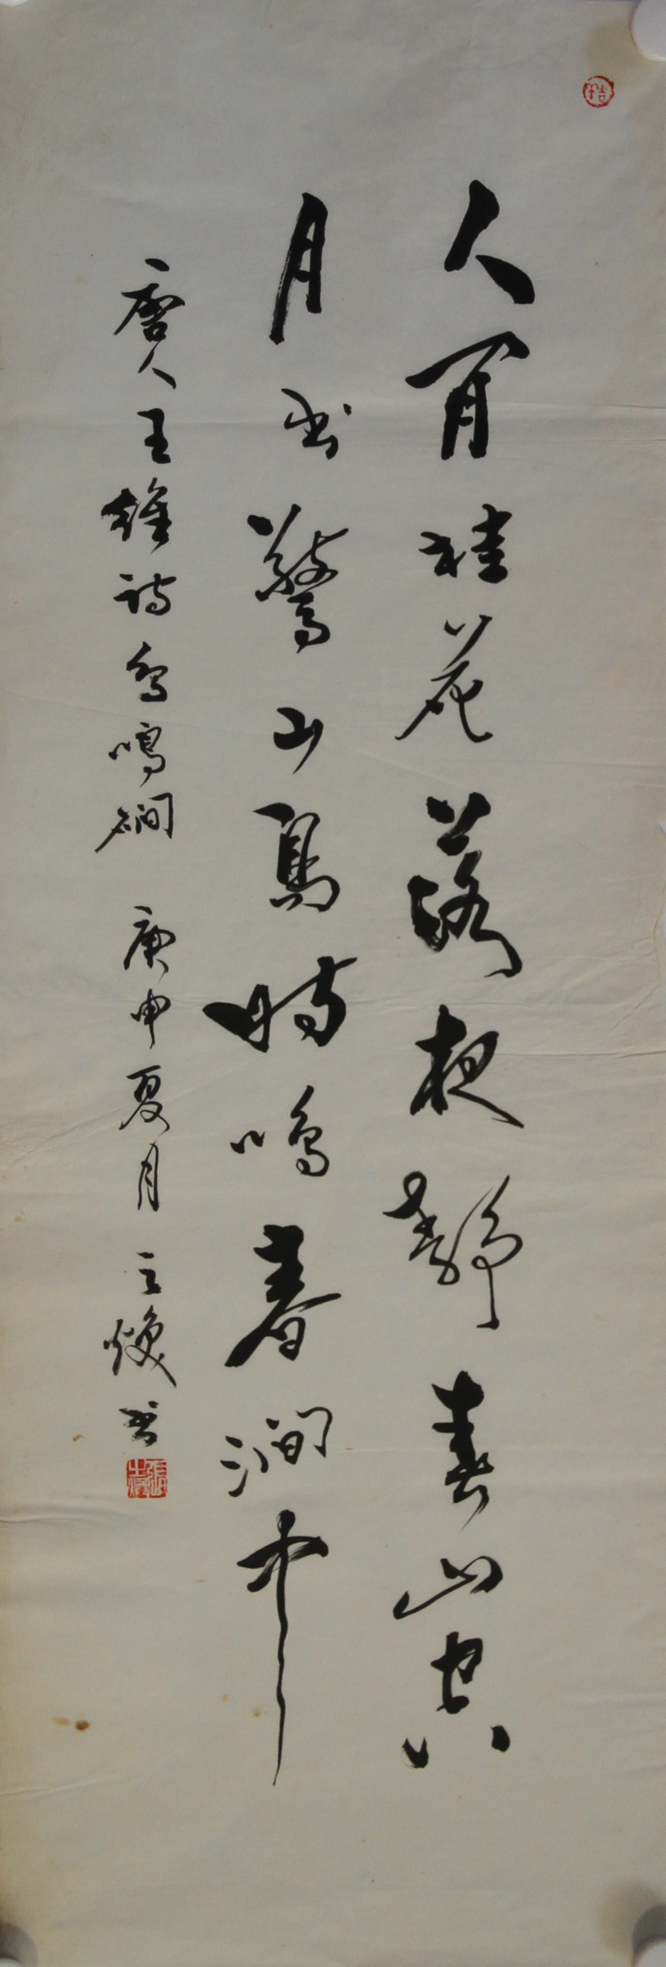 人閒桂花落夜静春山空
月出驚山鳥時鳴春澗中
唐人王維詩鳥鳴磵 庚申夏月 之煥书